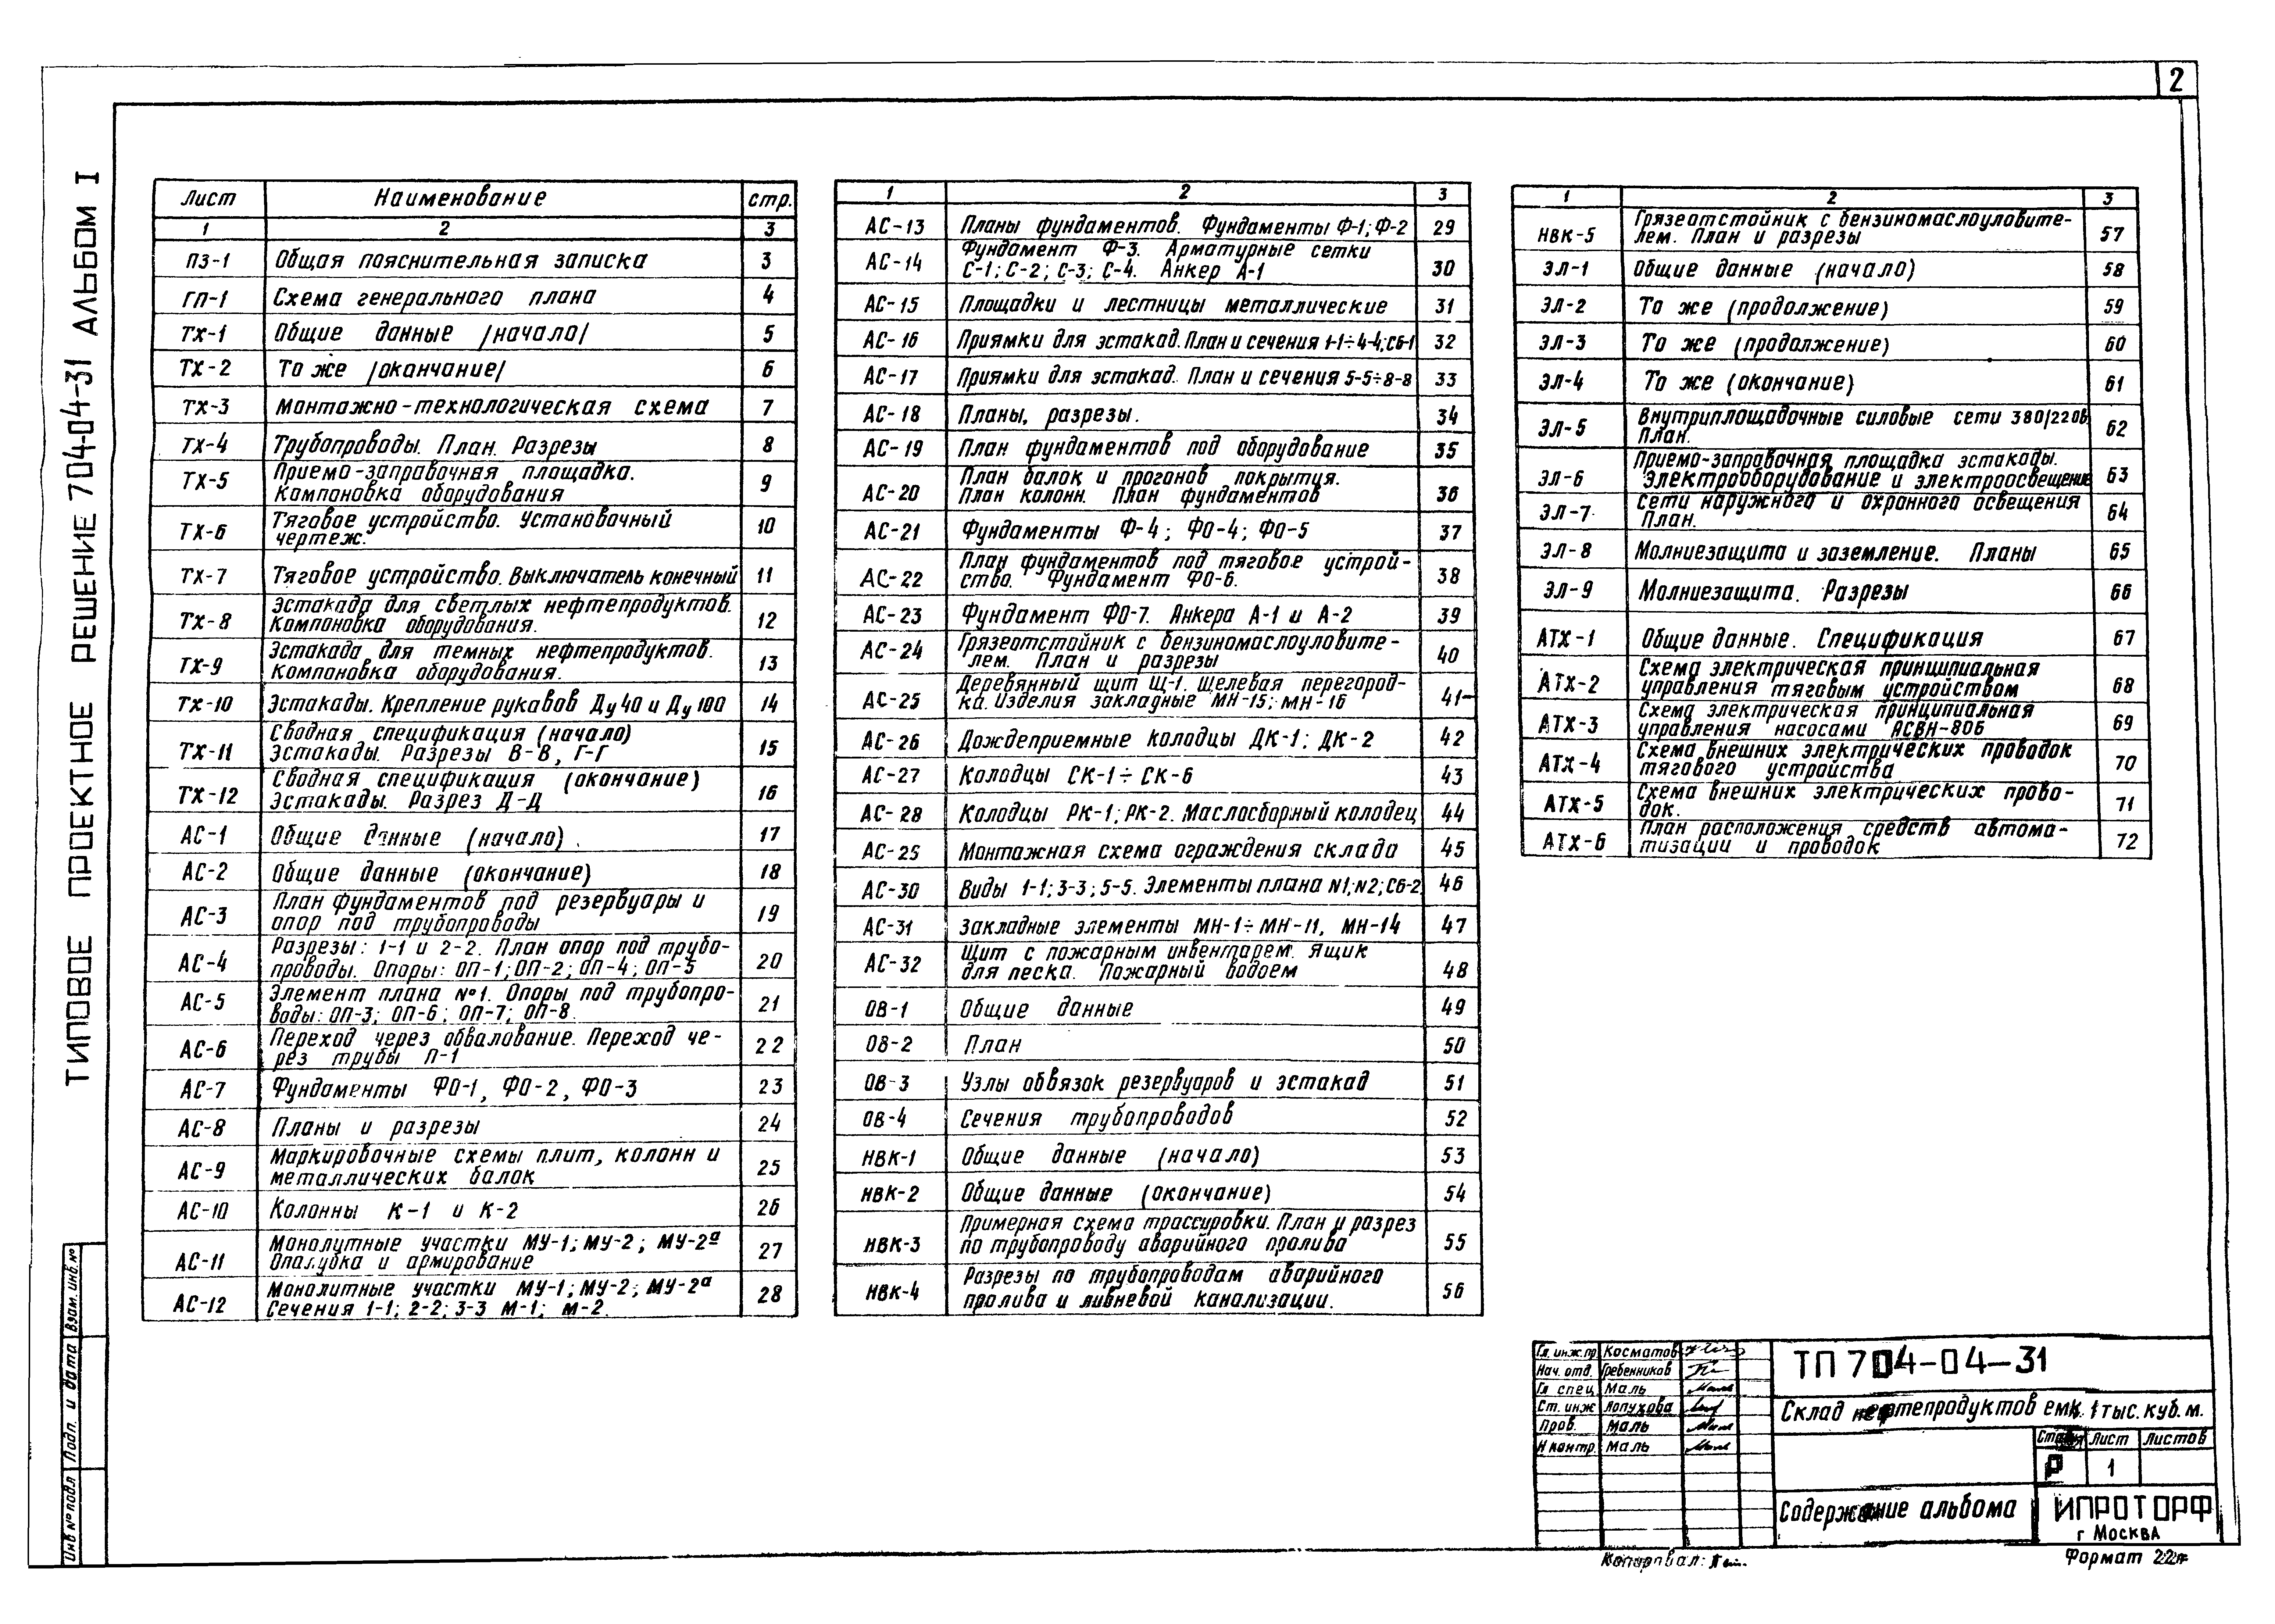 2
ТИПОВОЕ ПРОЕКТНОЕ РЕШЕНИЕ 704-04-31 АЛЬБОМ I
Лист Наименование стр.
1 2 3
ПЗ-1 Общая пояснительная записка 3
ГП-1 Схема генерального плана 4
ТХ-1 Общие данные /начало/ 5
ТХ-2 То же /окончание/ 6
ТХ-3 Монтажно-технологическая схема 7
ТХ-4 Трубопроводы. План. Разрезы 8
ТХ-5 Приемо-заправочная площадка. 9
Компоновка оборудования
ТХ-6 Тяговое устройство. Установочный 10
чертеж.
ТХ-7 Тяговое устройство. Выключатель конечный 11
ТХ-8 Эстакада для светлых нефтепродуктов. 12
Компоновка оборудования.
ТХ-9 Эстакада для темных нефтепродуктов. 13
Компоновка оборудования.
ТХ-10 Эстакады. Крепление рукавов Ду 40 и Ду 100 14
ТХ-11 Сводная спецификация (начало) 15
Эстакады. Разрезы В-В, Г-Г
ТХ-12 Сводная спецификация (окончание) 16
Эстакады. Разрез Д-Д
АС-1 Общие данные (начало). 17
АС-2 Общие данные (окончание) 18
АС-3 План фундаментов под резервуары и 19
опор под трубопроводы
АС-4 Разрезы: 1-1 и 2-2. План опор под трубо- 20
проводы. Опоры: ОП-1; ОП-2; ОП-4; ОП-5
АС-5 Элемент плана №1. Опоры под трубопро- 21
воды: ОП-3; ОП-6; ОП-7; ОП-8.
АС-6 Переход через обвалование. Переход че- 22
рез трубы П-1
АС-7 Фундаменты ФО-1, ФО-2, ФО-3 23
АС-8 Планы и разрезы 24
АС-9 Маркировочные схемы плит, колонн и 25
металлических балок
АС-10 Колонны К-1 и К-2 26
АС-11 Монолитные участки МУ-1; МУ-2; МУ-2а 27
Опалубка и армирование
АС-12 Монолитные участки МУ-1; МУ-2; МУ-2а 28
Сечения 1-1; 2-2; 3-3 М-1; М-2.
1 2 3
АС-13 Планы фундаментов. Фундаменты Ф-1; Ф-2 29
АС-14 Фундамент Ф-3. Арматурные сетки 30
С-1; С-2; С-3; С-4. Анкер А-1
АС-15 Площадки и лестницы металлические 31
АС-16 Приямки для эстакад. План и сечения 1-1÷4-4; Сб-1 32
АС-17 Приямки для эстакад. План и сечения 5-5÷8-8 33
АС-18 Планы, разрезы. 34
АС-19 План фундаментов под оборудование 35
АС-20 План балок и прогонов покрытия. 36
План колонн. План фундаментов
АС-21 Фундаменты Ф-4; ФО-4; ФО-5 37
АС-22 План фундаментов под тяговое устрой- 38
ство. Фундамент ФО-6.
АС-23 Фундамент ФО-7. Анкера А-1 и А-2 39
АС-24 Грязеотстойник с бензиномаслоуловите- 40
лем. План и разрезы
АС-25 Деревянный щит Щ-1. Щелевая перегород- 41
ка. Изделия закладные МН-15; МН-16
АС-26 Дождеприемные колодцы ДК-1; ДК-2 42
АС-27 Колодцы СК-1÷СК-6 43
АС-28 Колодцы РК-1; РК-2. Маслосборный колодец 44
АС-25 Монтажная схема ограждения склада 45
АС-30 Виды 1-1; 3-3; 5-5. Элементы плана N1; N2; Сб-2. 46
АС-31 Закладные элементы МН-1÷МН-11, МН-14 47
АС-32 Щит с пожарным инвентарем. Ящик 48
для песка. Пожарный водоем
ОВ-1 Общие данные 49
ОВ-2 План 50
ОВ-3 Узлы обвязок резервуаров и эстакад 51
ОВ-4 Сечения трубопроводов 52
НВК-1 Общие данные (начало) 53
НВК-2 Общие данные (окончание) 54
НВК-3 Примерная схема трассировки. План и разрез 55
по трубопроводу аварийного пролива
НВК-4 Разрезы по трубопроводам аварийного 56
пролива и ливневой канализации.
1 2 3
НВК-5 Грязеотстойник с бензиномаслоуловите- 57
лем. План и разрезы
ЭЛ-1 Общие данные (начало) 58
ЭЛ-2 То же (продолжение) 59
ЭЛ-3 То же (продолжение) 60
ЭЛ-4 То же (окончание) 61
ЭЛ-5 Внутриплощадочные силовые сети 380/220в. 62
План.
ЭЛ-6 Приемо-заправочная площадка эстакады. 63
Электрооборудование и электроосвещение
ЭЛ-7 Сети наружного и охранного освещения 64
План.
ЭЛ-8 Молниезащита и заземление. Планы 65
ЭЛ-9 Молниезащита. Разрезы 66
АТХ-1 Общие данные. Спецификация 67
АТХ-2 Схема электрическая принципиальная 68
управления тяговым устройством
АТХ-3 Схема электрическая принципиальная 69
управления насосами АСВН-80Б
АТХ-4 Схема внешних электрических проводок 70
тягового устройства
АТХ-5 Схема внешних электрических прово- 71
док.
АТХ-6 План расположения средств автома- 72
тизации и проводок
Гл. инж. пр. Косматов
Нач. отд. Гребенников
Гл. спец. Маль
Ст. инж. Лопухова
Пров. Маль
Н контр. Маль
ТП 704-04-31
Склад нефтепродуктов емк. 1 тыс. куб. м.
Стадия Лист Листов
Р 1
Содержание альбома
ГИПРОТОРФ
г Москва
Копировал:
Формат 22г
Инв № подл Подп. и дата Взам. инв. №